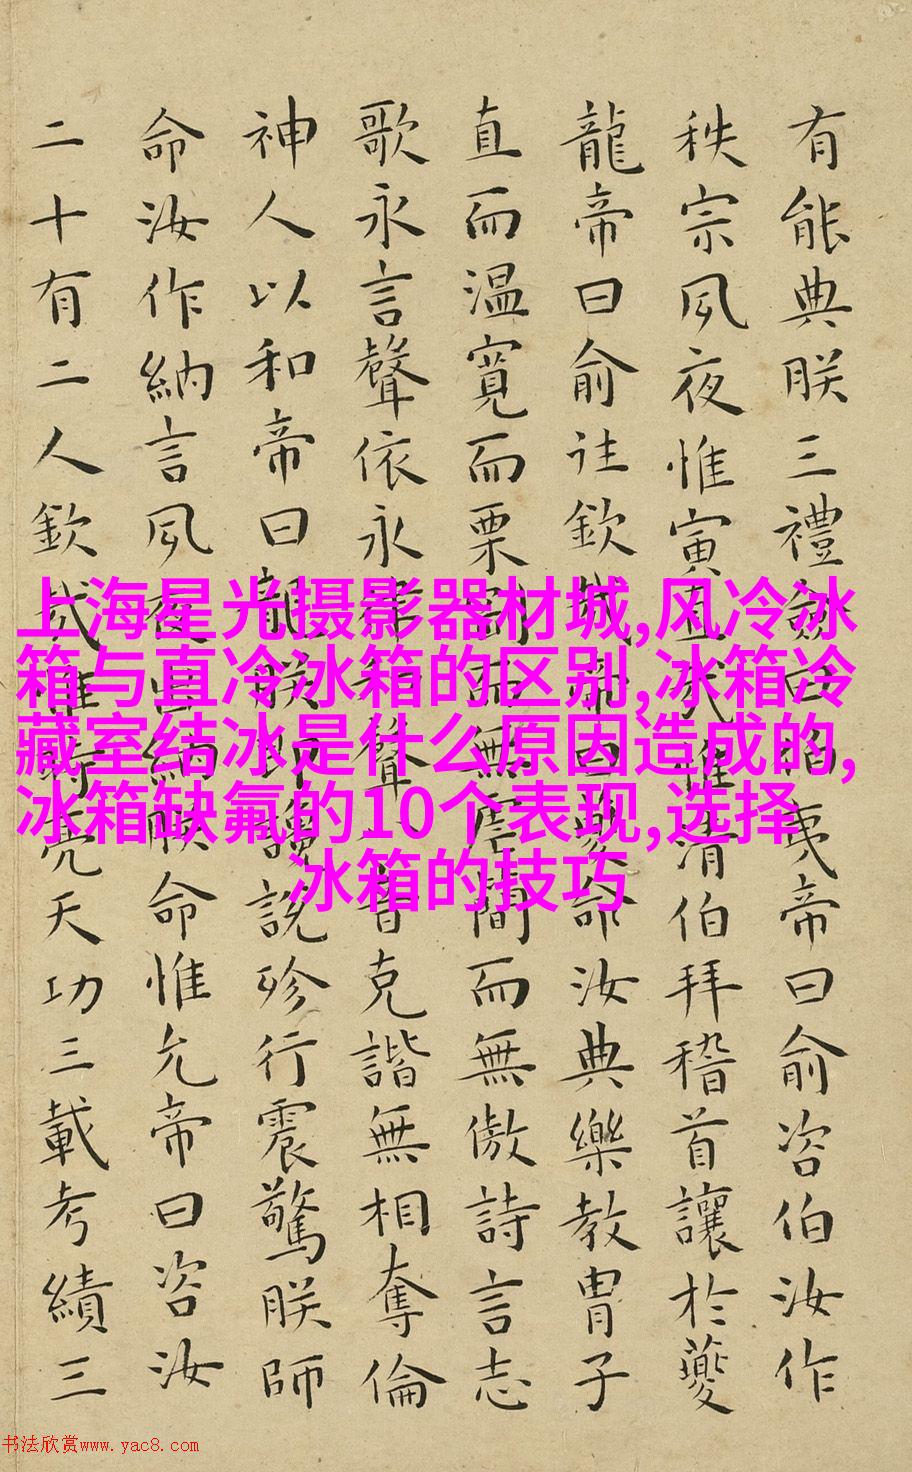 有能典朕三禮僉曰伯夷帝曰俞咨伯汝作
秩宗夙夜惟寅直哉惟清伯拜稽首讓於夔
龍帝曰俞往欽哉帝曰夔命汝典樂教胄子
直而温寬而栗剛而無虐簡而無傲詩言志
歌永言聲依永律和聲八音克諧無相奪倫
神人以和帝曰龍朕堲讒說殄行震驚朕師
命汝作納言夙夜出納朕命惟允帝曰咨汝
二十有二人欽哉惟時亮天功三載考績三
上海星光摄影器材城,风冷冰
箱与直冷冰箱的区别,冰箱冷
藏室结冰是什么原因造成的,
冰箱缺氟的10个表现,选择
冰箱的技巧
书法欣赏www.yac8.com